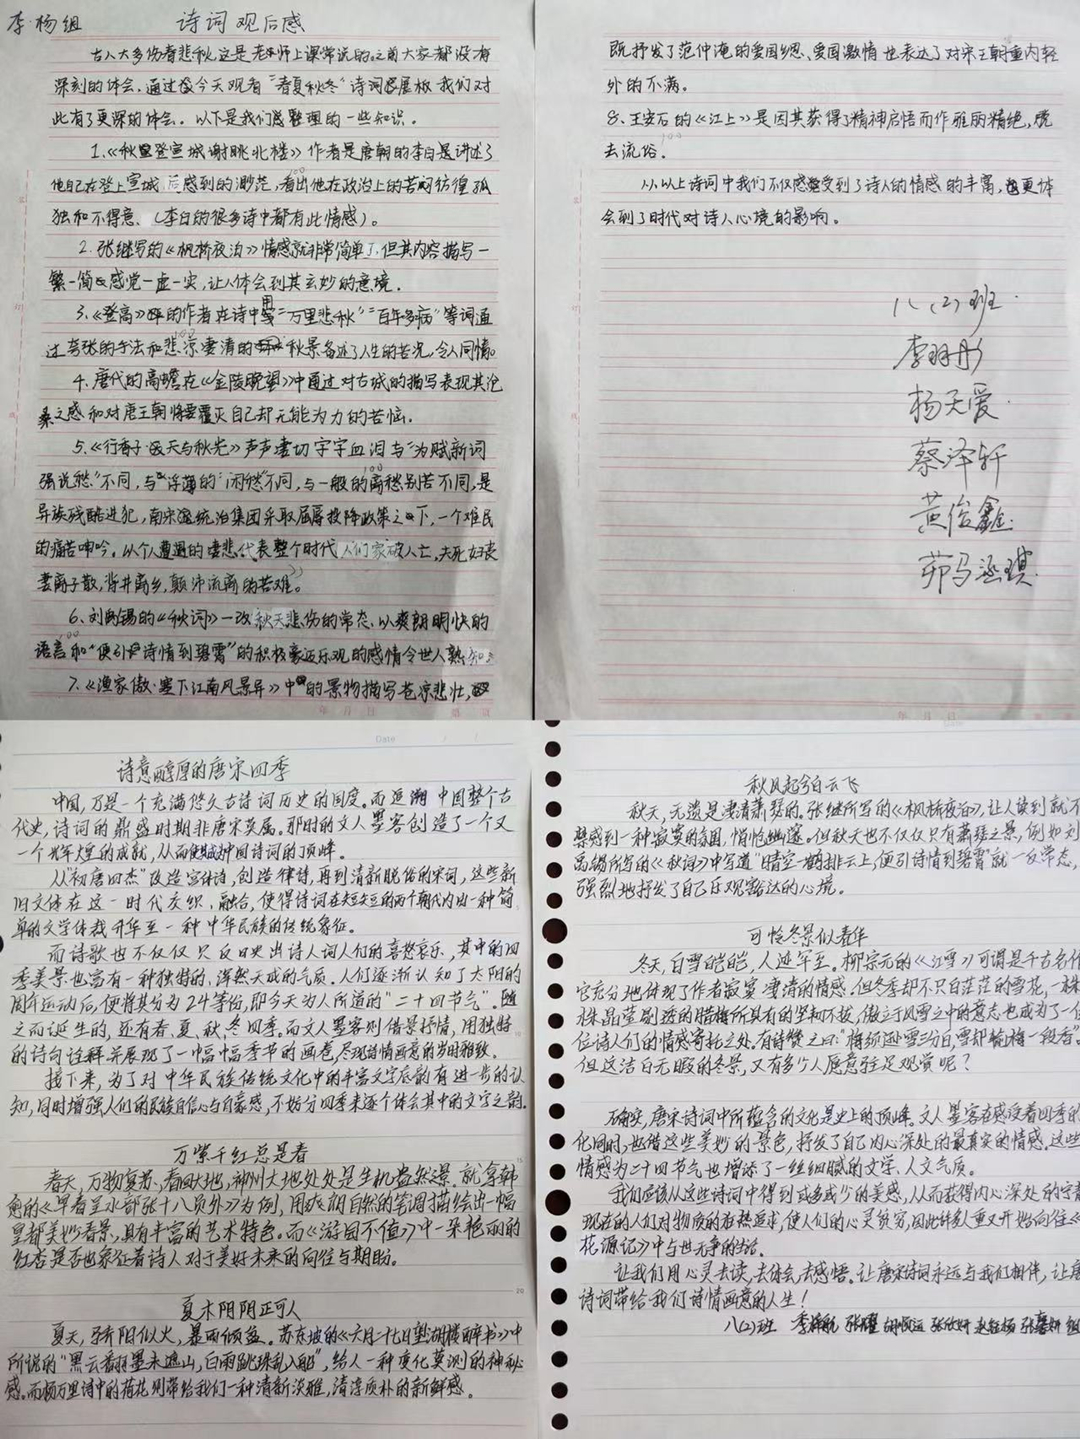 李·杨组 诗词观后感
古人大多伤春悲秋,这是老师上课常说的。之前大家都没有
深刻的体会,通过今天观看“春夏秋冬”诗词展板,我们对
此有了更深的体会。以下是我们整理的一些知识。
1.《秋登宣城谢朓北楼》作者是唐朝的李白是讲述了
他自己在登上宣城后感到的渺茫,看出他在政治上的苦闷彷徨孤
独和不得意、(李白的很多诗中都有此情感)。
2.张继写的《枫桥夜泊》情感就非常简单了,但其内容描写一
繁一简感觉一虚一实,让人体会到其玄妙的意境.
3.《登高》的作者在诗中用“万里悲秋”“百年多病”等词通
过夸张的手法和悲凉凄清的秋景备述了人生的苦况,令人同情。
4.唐代的高蟾在《金陵晚望》中通过对古城的描写表现其沧
桑之感和对唐王朝将要覆灭自己却无能为力的苦恼.
5.《行香子·天与秋光》声声凄切字字血泪与“为赋新词
强说愁”不同,与“浮薄的”闲愁”不同,与一般的离愁别苦不同,是
异族残酷进犯,南宋统治集团采取屈辱投降政策之下,一个难民
的痛苦呻吟。以个人遭遇的凄悲代表整个时代人们家破人亡,夫死妇丧
妻离子散,背井离乡,颠沛流离的苦难。
6.刘禹锡的《秋词》一改秋天悲伤的常态.以爽朗明快的
语言和“便引诗情到碧霄”的积极豪迈乐观的感情令世人熟知。
7.《渔家傲·塞下江南风景异》中的景物描写苍凉悲壮,
既抒发了范仲淹的爱国思、爱国激情也表达了对宋王朝重内轻
外的不满。
8.王安石的《江上》是因其获得了精神启悟而作雅丽精绝,脱
去流俗.
从以上诗词中我们不仅感受到了诗人的情感的丰富,更体
会到了时代对诗人心境的影响。
八(2)班.
李羽彤
杨天爱.
蔡泽轩
黄俊鑫
茆马涵琪
诗意醇厚的唐宋四季
中国,乃是一个充满悠久古诗词历史的国度。而追溯中国整个古
代史,诗词的鼎盛时期非唐宋莫属。那时的文人墨客创造了一个又
一个辉煌的成就,从而使赋中国诗词的了顶峰。
从“初唐四杰”改造宫体诗,创造律诗,再到清新脱俗的宋词,这些新
旧文体在这一时代交织、融合,使得诗词在短短的两个朝代内由一种简
单的文学体裁升华至一种中华民族的传统象征。
而诗歌也不仅仅只反映出诗人词人们的喜怒哀乐,其中的四
季美景也富有一种独特的,浑然天成的气质。人们逐渐认知了太阳的
周年运动后,便将其分为24等份,即今天为人所道的“二十四节气”。随
之而诞生的,还有春、夏、秋、冬四季。而文人墨客则借景抒情,用独特
的诗句诠释并展现了一幅幅季节的画卷,尽现诗情画意的岁时雅致。
接下来,为了对中华民族传统文化中的丰富文字底韵有进一步的认
知,同时增强人们的民族自信心与自豪感,不妨分四季来逐个体会其中的文字之韵。
万紫千红总是春
春天,万物复苏、春回大地,神州大地处处是生机盎然之景.就拿韩
愈的《早春呈水部张十八员外》为例,用成朗自然的笔调描绘出一幅
皇都美妙春景,具有丰富的艺术特色。而《游园不值》中一朵艳丽的
红杏是否也象征着诗人对于美好未来的向往与期盼。
夏木阴阴正可人
夏天,骄阳似火,暴雨倾盆。苏东坡的《六月二十七日望湖楼醉书》中
所说的“黑云翻墨未遮山,白雨跳珠乱入船”,给人一种变化莫测的神秘
感。而杨万里诗中的荷花则带给我们一种清新淡雅,清淳质朴的新鲜感。
秋风起兮白云飞
秋天,无疑是凄清萧瑟的。张继所写的《枫桥夜泊》,让人读到就不
禁感到一种寂寞的氛围,悄怆幽邃。但秋天也不仅仅只有萧瑟之景,例如刘
禹锡所写的《秋词》中写道“晴空一鹤排云上,便引诗情到碧霄”就一反常态,
强烈地抒发了自己乐观豁达的心境。
可怜冬景似春华
冬天,白雪皑皑,人迹罕至。柳宗元的《江雪》可谓是千古名作
它充分地体现了作者寂寞凄清的情感。但冬季却不只白茫茫的雪花,一株
株晶莹剔透的腊梅所具有的坚韧不拔,傲立于风雪之中的意志也成为了一位
位诗人们的情感寄托之处.有诗赞之曰:“梅须逊雪三分白,雪却输梅一段香”。
但这洁白无暇的冬景,又有多少人愿意驻足观赏呢?
确实,唐宋诗词中所蕴含的文化是史上的顶峰。文人墨客在感受着四季的
化同时,也借这些美妙的景色,抒发了自己内心深处的最真实的情感.这些
情感为二十四节气也增添了一丝细腻的文学、人文气质。
我们应该从这些诗词中得到或多或少的美感,从而获得内心深处的宁静
现在的人们对物质的狂热追求,使人们的心灵贫穷,因此许多人重又开始向往《
花源记》中与世无争的生活.
让我们用心灵去读,去体会,去感悟。让唐宋诗词永远与我们相伴,让唐
诗词带给我们诗情画意的人生!
八(2)班